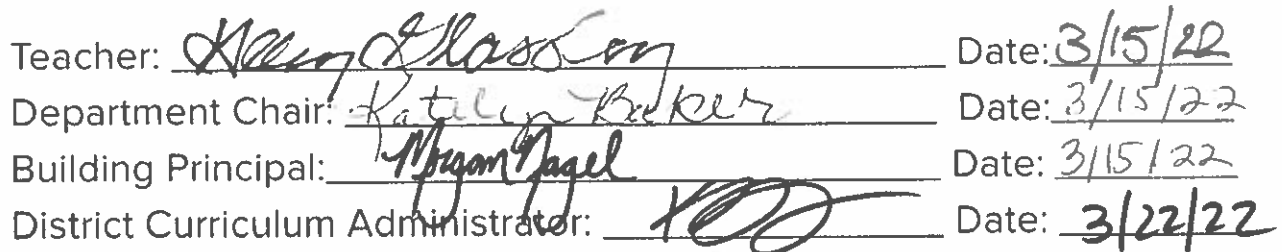 Teacher: Date: 3/15/22
Department Chair: Katelyn Date: 3/15/22
Building Principal: Morgan Nagel Date: 3/15/22
District Curriculum Administrator: Date: 3/22/22